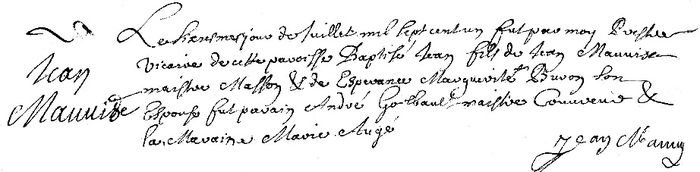 Jean
Mauvide
Le sixiesme jour de Juillet mil sept cent un fut par moy Prestre
vicaire de cette paroisse Baptisé Jean fils de Jean Mauvide
maistre Masson & de Esperance Marguerite Buron son
Espouse fut parain André maistre &
la Maraine Marie Augé
Jean